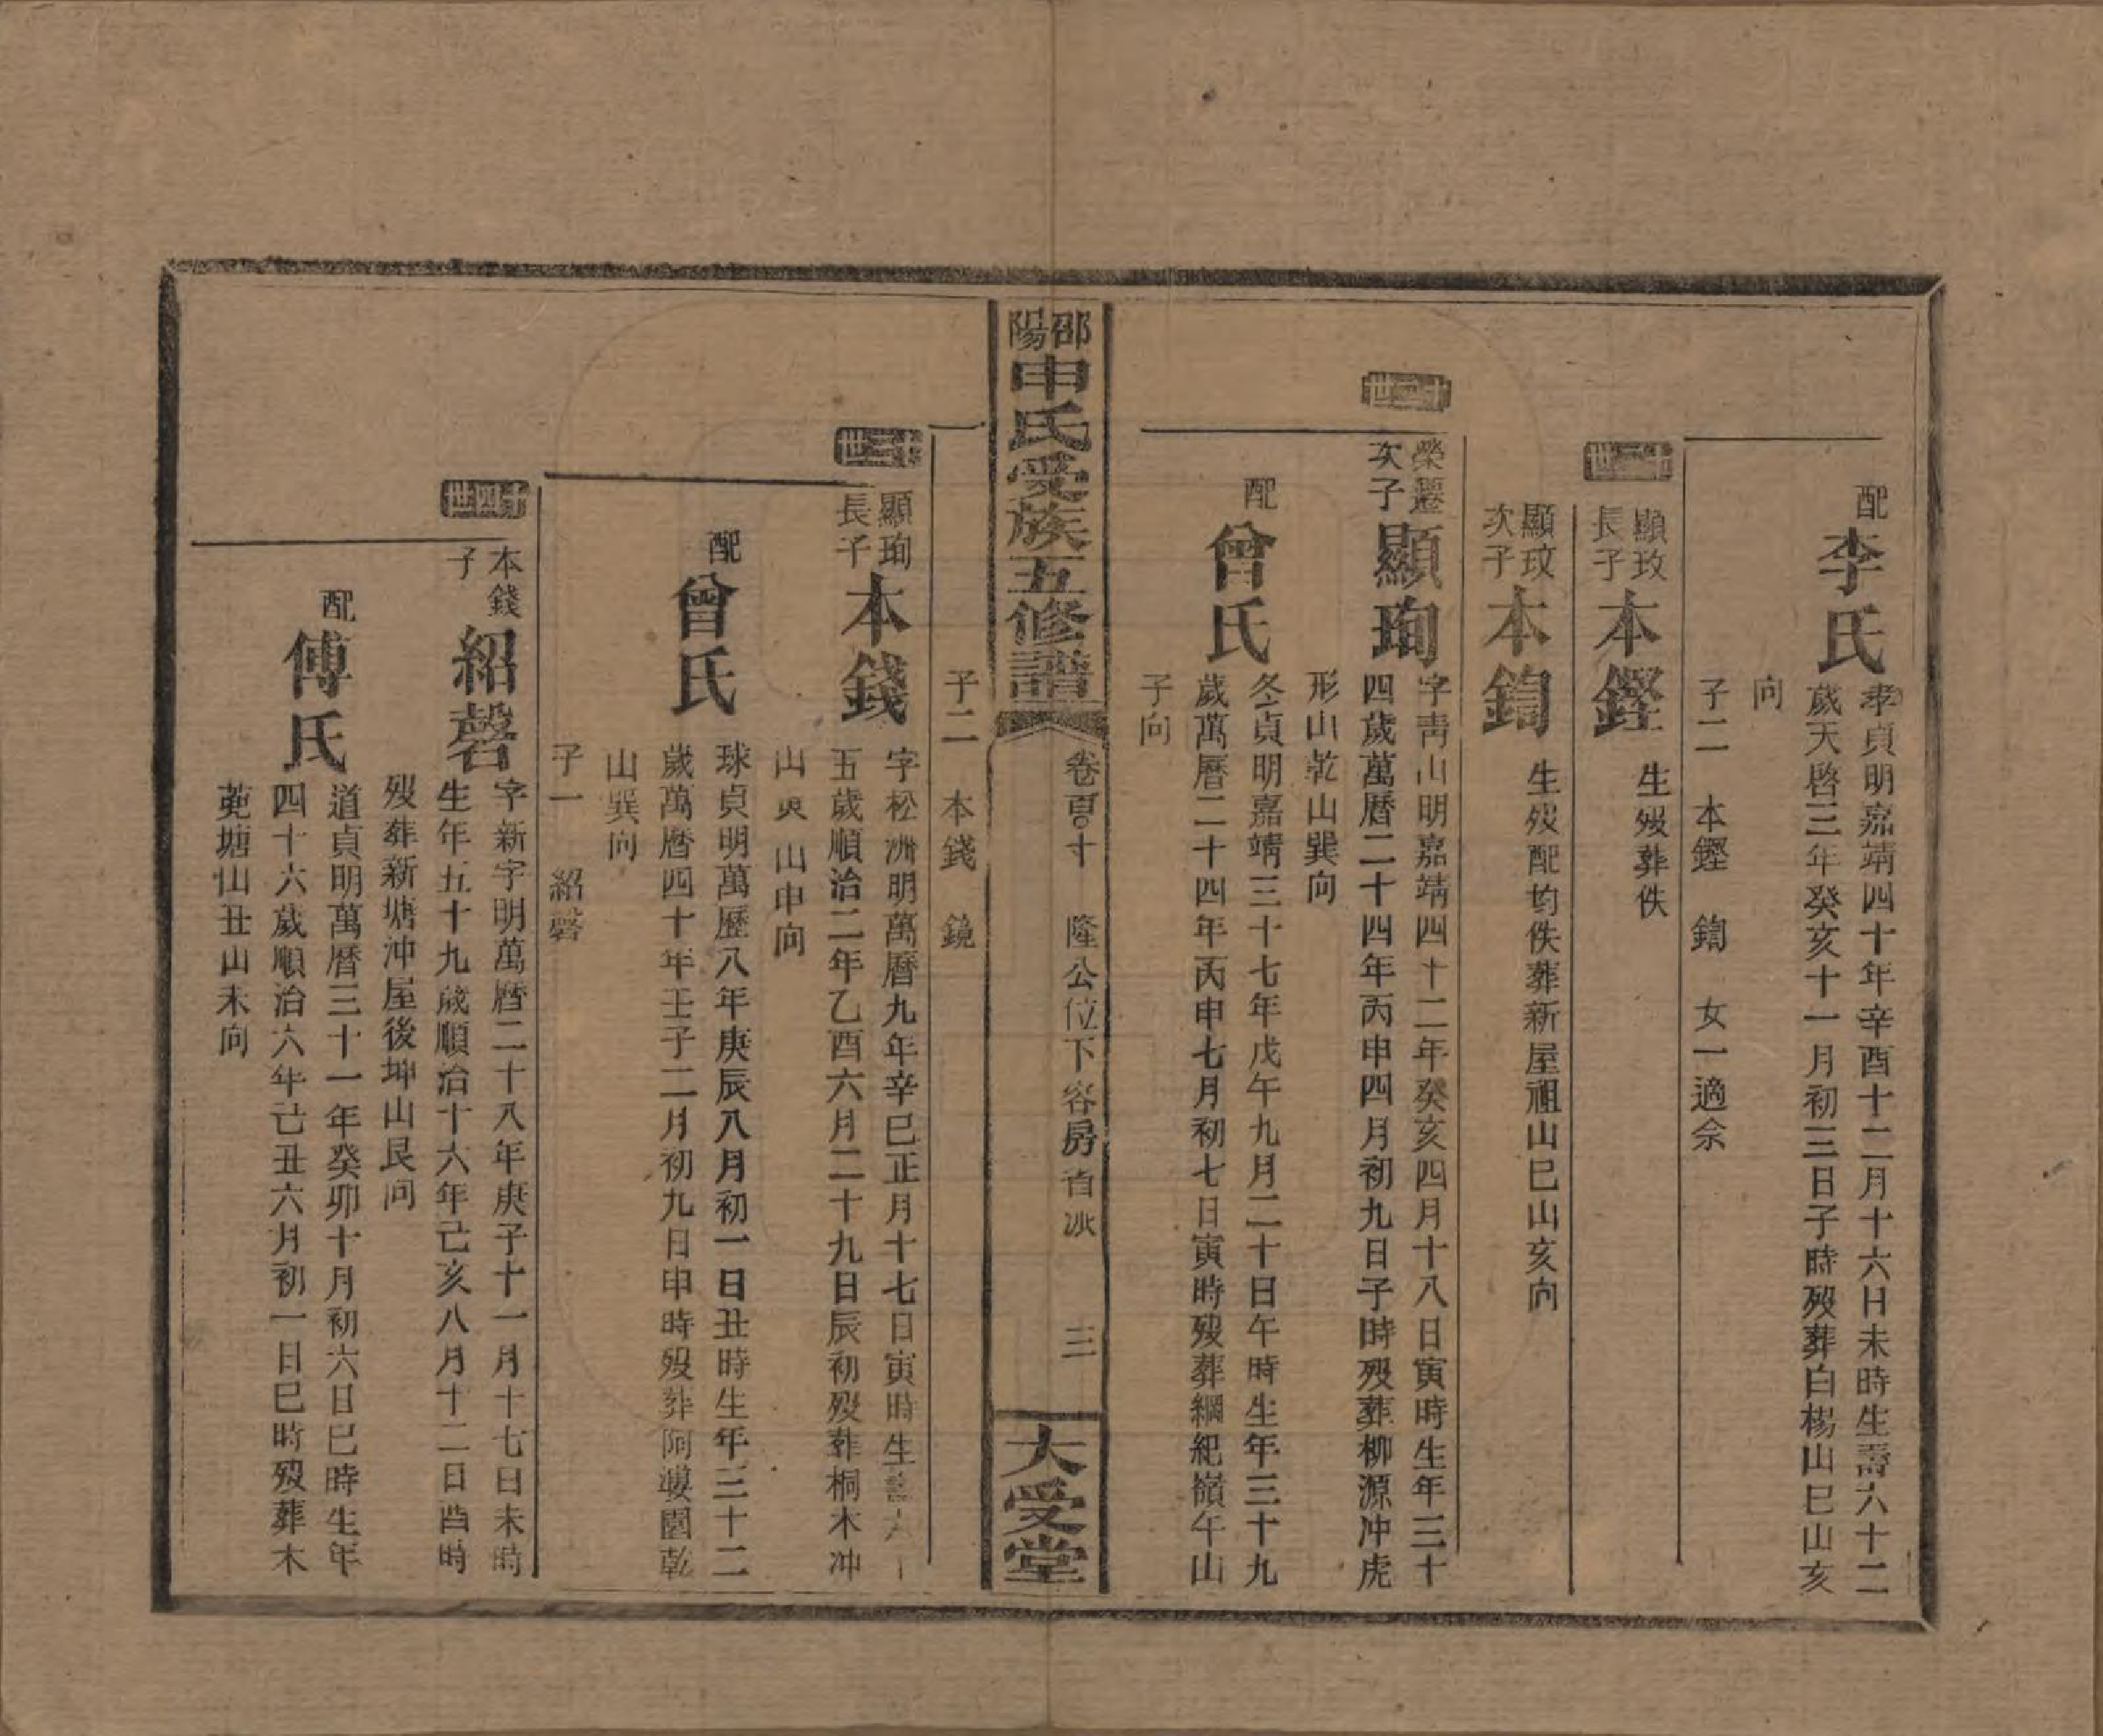 配
李氏
孝貞明嘉靖四十年辛酉十二月十六日未時生壽六十二
歲天啓三年癸亥十一月初三日子時歿葬白楊山巳山亥
向
子二 本鏗 鍧 女一適佘
十三世
顯玟
長子
本鏗
生歿葬佚
顯玟
次子
本鍧
生歿配均佚葬新屋祖山巳山亥向
十二世
榮遷
次子
顯珣
字靑山明嘉靖四十二年癸亥四月十八日寅時生年三十
四歲萬曆二十四年丙申四月初九日子時歿葬柳源冲虎
形山乾山巽向
配
曾氏
冬貞明嘉靖三十七年戊午九月二十日午時生年三十九
歲萬曆二十四年丙申七月初七日寅時歿葬綱紀嶺午山
子向
邵陽
申氏受族五修譜
卷 十 隆公位下容房省 三
大受堂
子二 本錢 鏡
十三世
顯珣
長子
本錢
字松洲明萬曆九年辛巳正月十七日寅時生 六十
五歲順治二年乙酉六月二十九日辰初歿葬桐木冲
山 山申向
配
曾氏
球貞明萬歷八年庚辰八月初一日丑時生年三十二
歲萬曆四十年壬子二月初九日申時歿葬阿 園乾
山巽向
子一 紹磬
十四世
本錢
子
紹磬
字新字明萬曆二十八年庚子十一月十七日未時
生年五十九歲順治十六年己亥八月十二日酉時
歿葬新塘冲屋後坤山艮向
配
傅氏
道貞明萬曆三十一年癸卯十月初六日巳時生年
四十六歲順治六年己丑六月初一日巳時歿葬木
蔸塘仙丑山未向